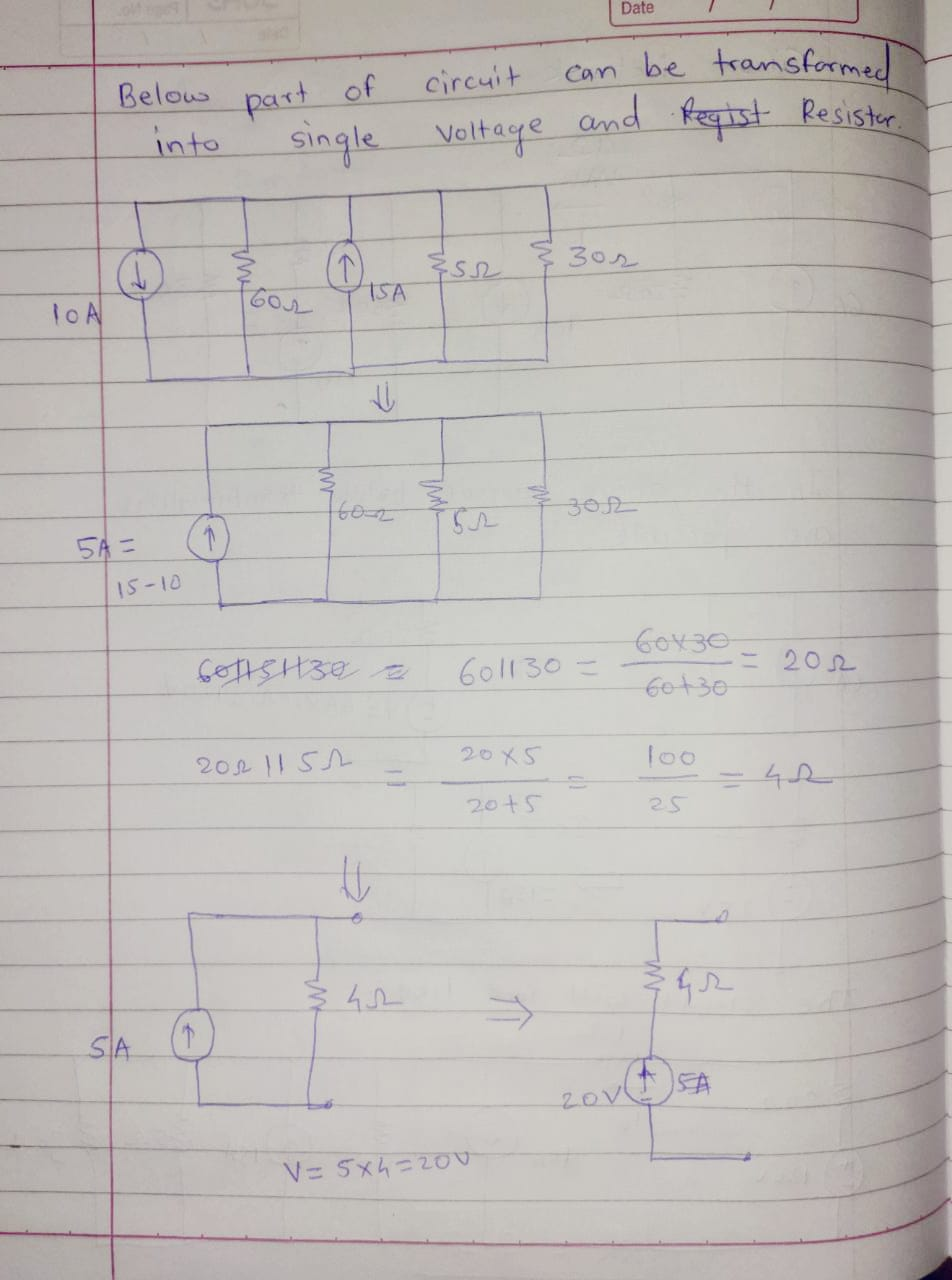 Date / /
Below part of circuit can be transformed
into single voltage and Regist Resistor.
10A
60Ω
15A
5Ω
30Ω
⇓
5A =
15-10
60Ω
5Ω
30Ω
60||5||30 = 60||30 = 60×30 / 60+30 = 20Ω
20Ω || 5Ω = 20×5 / 20+5 = 100 / 25 = 4Ω
⇓
5A
4Ω
⇒
4Ω
20V
+
-
5A
V = 5×4 = 20V